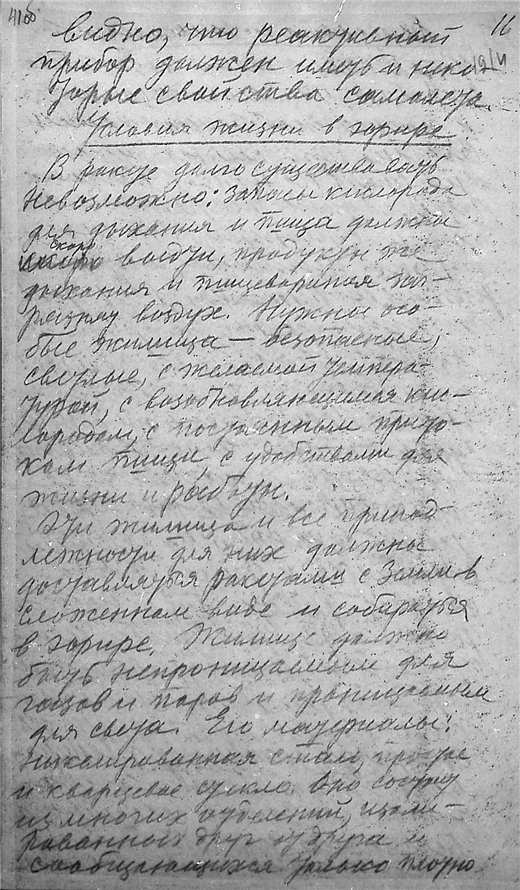 11
видно, что реактивный
прибор должен иметь и неко-
торые свойства самолета.
Условия жизни в эфире
В ракете долго существовать
невозможно: запасы кислорода
для дыхания и пища должны
скоро
выйти, продукты же
дыхания и пищеварения заг-
рязнят воздух. Нужны осо-
бые жилища — безопасные,
светлые, с желаемой темпера-
турой, с возобновляющимся кис-
лородом, с постоянным прито-
ком пищи, с удобствами для
жизни и работы.
Эти жилища и все принад-
лежности для них должны
доставляться ракетами с Земли в
сложенном виде и собираться
в эфире. Жилище должно
быть непроницаемым для
газов и паров и проницаемым
для света. Его материалы:
никелированная сталь, простое
и кварцевое стекло. Оно состоит
из многих отделений, изоли-
рованных друг от друга и
сообщающихся только плотно